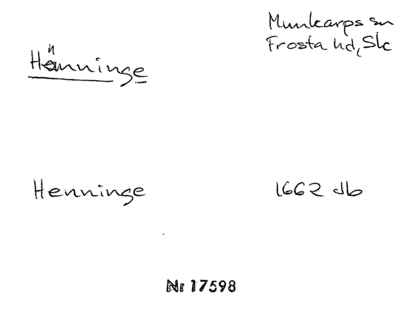 Munkarps sn
Frosta hd, Sk
Hänninge
Henninge
1662 db
Nr 17598